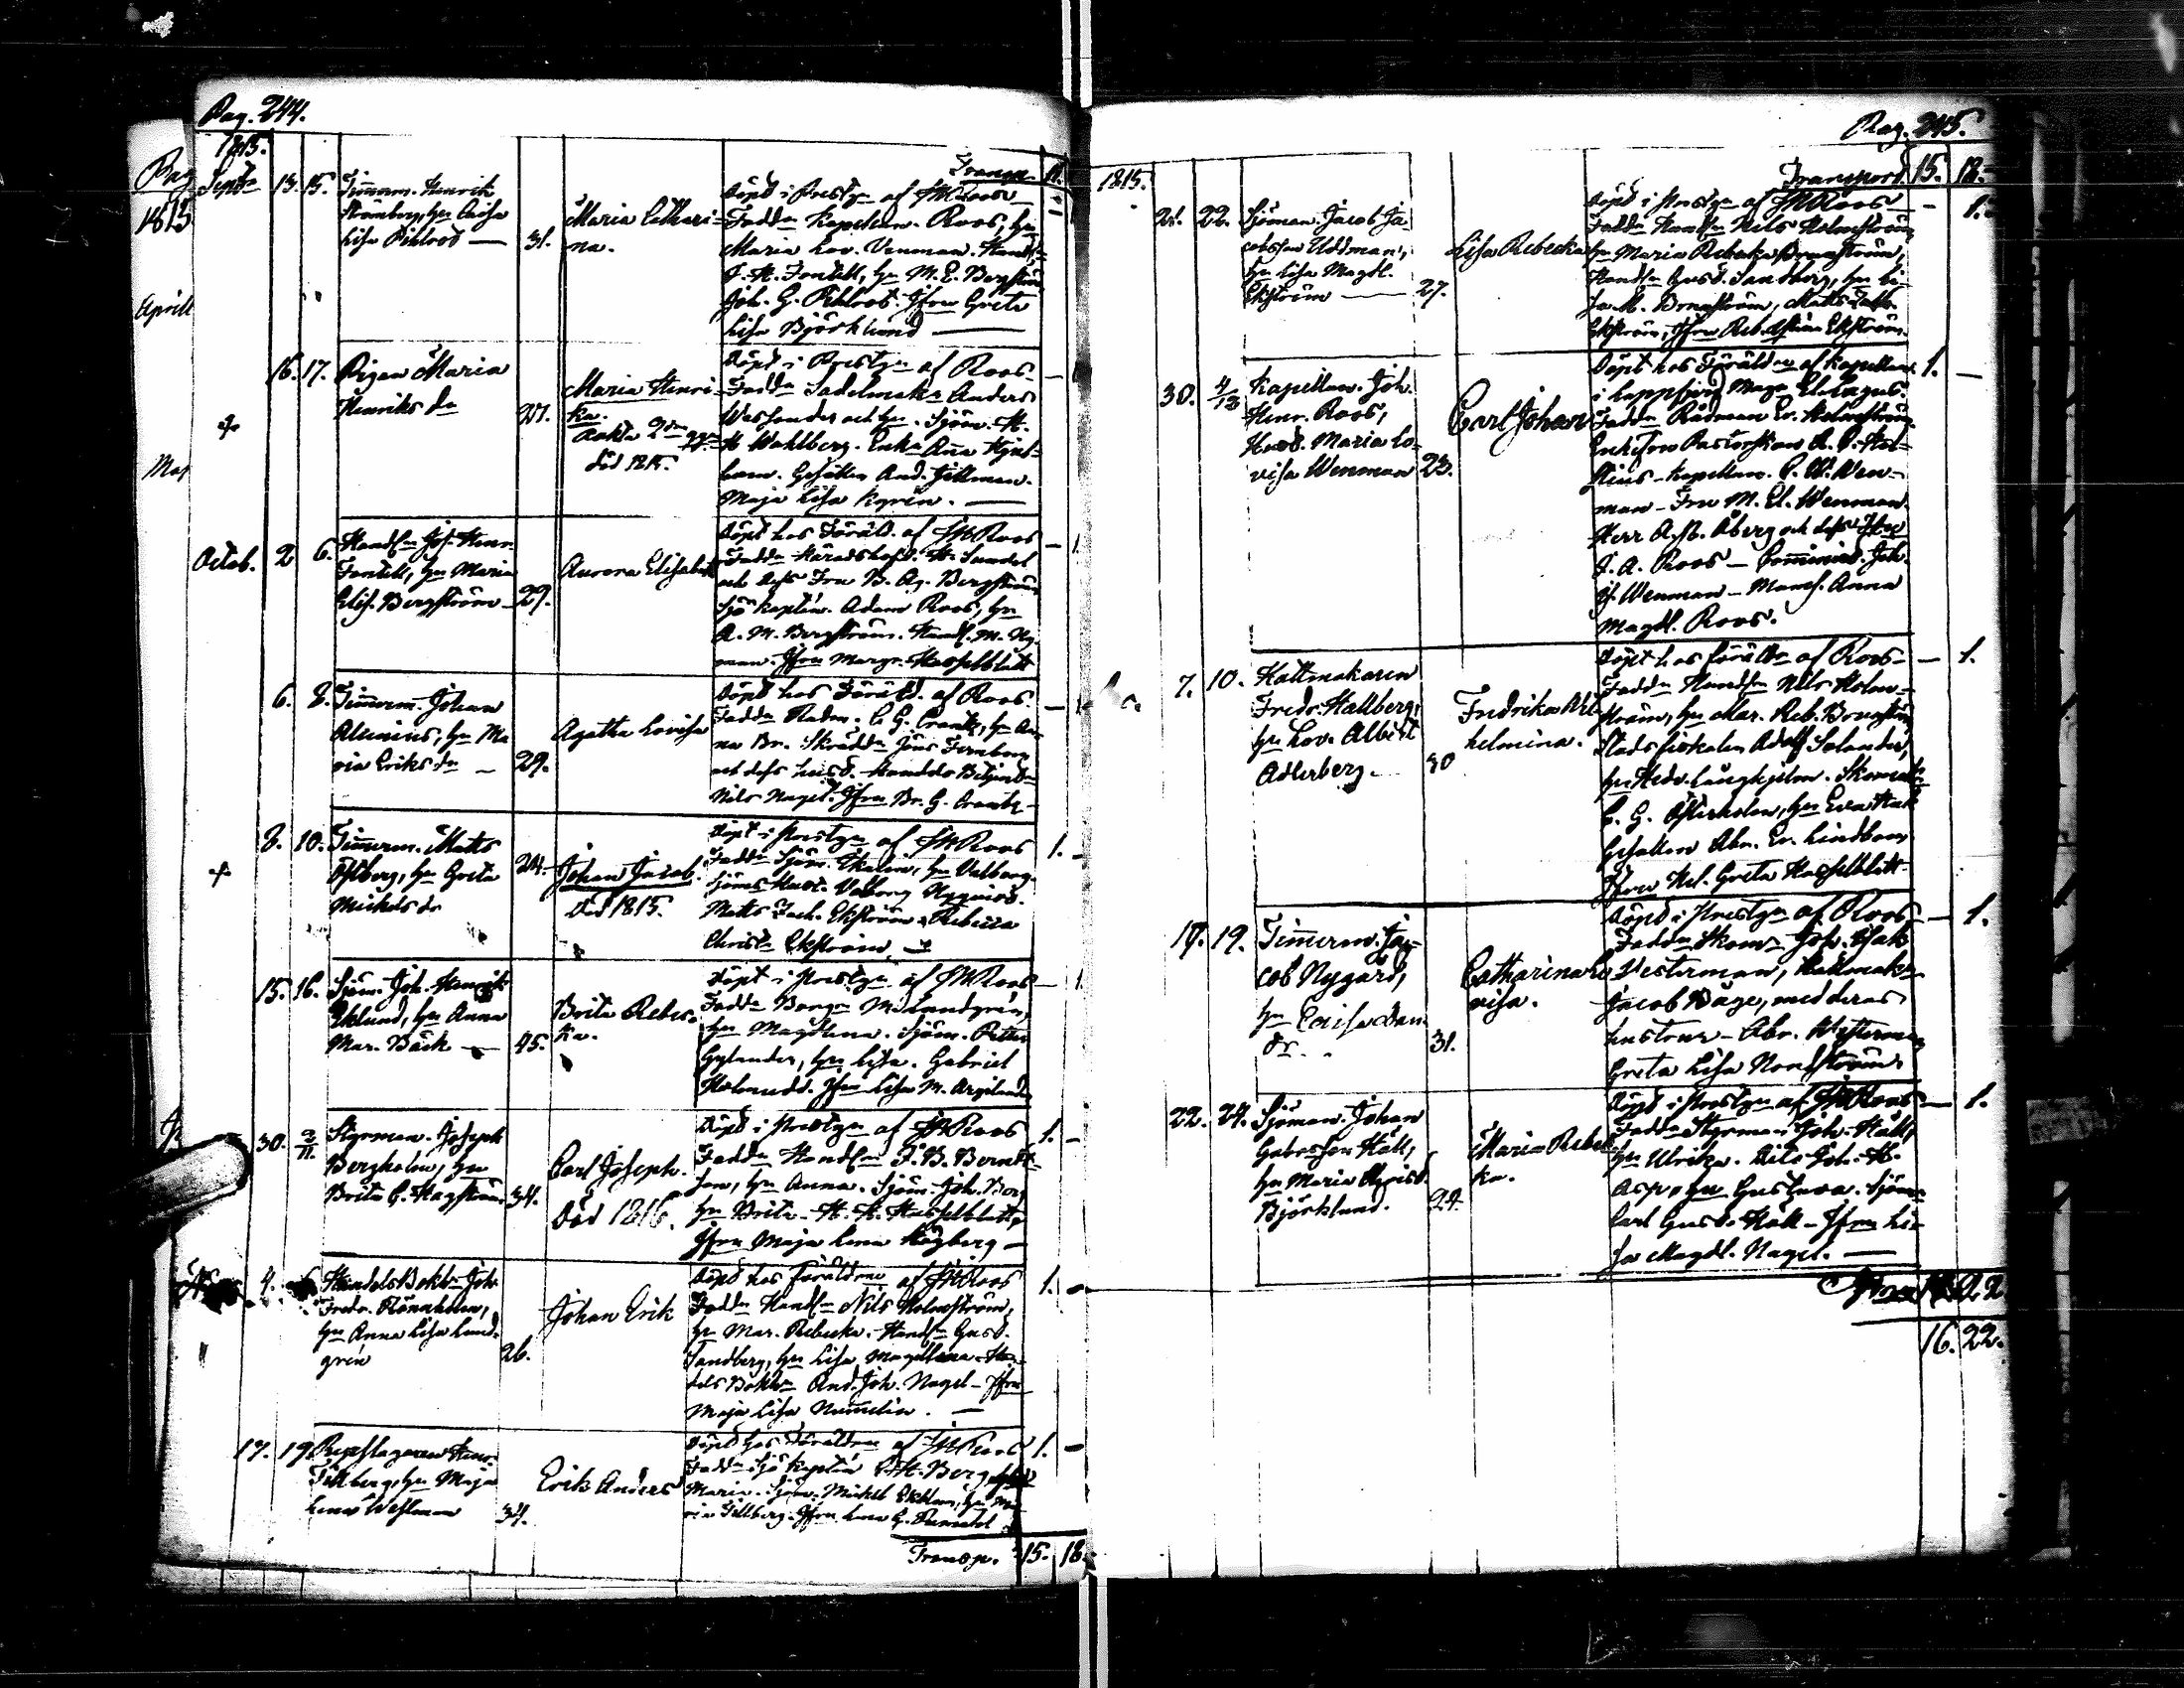 Pag. 244.
1815.
Septr 13. 15. Timmerm. Henrik
Strömberg, hu Caisa
Lisa Pihlroos — 31.
Maria Cathari-
na.
Transp. 11.
Döpt i Prestgn af JHRoos
Faddr Kapellan. Roos, hu
Maria Lov. Venman. Handln
J. H. Fontell, hu M. E. Bergström
Joh. G. Pihlroos. Jfru Greta
Lisa Björklund —
16. 17. Pigan Maria
Henriks dr 27.
Maria Henri-
ka.
död 1815.
Döpt i Prestgn af Roos
Faddr Sadelmak. Anders
och hu. Sjöm. H.
H Wahlberg. Enka Ana
Gesällen And.
Maja Lisa
Octob. 2 6. Handln Joh. Henr.
Fontell, hu Maria
Elis. Bergström 29.
Aurora Elisabeth
Döpt hos Föräld. af JHRoos
Faddr Häradshöfd. Hr Sundel
och dess Fru B. Ag. Bergström
Sjökapten. Adam Roos, hu
A. M. Bergström. Handl. M. Ny
man. Jfru Margr. Hasselblatt
6. 8. Timmerm. Johan
Alenius, hu Ma
ria Eriks dr — 29.
Agatha Lovisa
Döpt hos Föräld. af Roos.
Faddr Radm. C. G. Crantz, hu An
na Br. Skräddr Jöns Fernborg
och dess hust. Handels Betjent
Nils Nagel. Jfru Br. G. Crantz
8. 10. Timmerm. Matts
Östberg, hu Greta
Mickels dr 24.
Johan Jacob.
död 1815.
Döpt i Prestgn af JHRoos 1.
Faddr Sjöm. Ekholm, hu Valborg.
Sjöms Hust. Valborg
Matts Zach. Ekström, Rebecca
Christ. Ekström. —
15. 16. Sjöm. Joh. Henrik
Eklund, hu Anna
Mar. Bäck — 45.
Brita Rebec-
ka.
Döpt i Prestgn af JHRoos — 1
Faddr Borgn M. Lundgren,
hu Magdlena. Sjöm. Petter
Gylander, hu Lisa. Gabriel
Holmudd. Jfru Lisa M. Argilander
30. 2/11. Styrman. Joseph
Bergholm, hu
Brita C. Hagström 34.
Carl Joseph.
Död 1816.
Döpt i Prestgn af JHRoos 1. -
Faddr Handln J. B. Berndt-
son, hu Anna. Sjöm. Joh. Berg
hu Brita. H. H. Hasselblatt,
Jfru Maja Lena Högberg —
4. Handels Bokhr Joh.
Fredr. Rönnholm,
hu Anna Lisa Lund-
gren 26.
Johan Erik
Döpt hos föräldrne af JHRoos 1. -
Faddr Handln Nils Holmström,
hu Mar. Rebecka. Handln Gust.
Sandberg, hu Lisa Magdlena. Han-
dels Bokhr And. Joh. Nagel — Jfru
Maja Lisa Numelin. —
17. 19. Repslagaren Henr.
Tillberg, hu Maja
Lena Westman 34.
Erik Anders
Döpt hos Föräldrn af JHRoos 1. -
Faddr Sjökapten
Maria. Sjöm. Mickel Ekblom, hu Ma
ria Tillberg. Jfru Lena G.
Transp. 15. 18.
Pag. 245.
1815.
Transport. 15. 18.
21. 22. Sjöman. Jacob Ja-
cobsson Uddman,
hu Lisa Magdl.
Ekström — 27.
Lisa Rebecka
Döpt i Prestgn af JHRoos — 1.
Faddr Handln Nils Holmström,
hu Maria Rebecka Brunström,
Handln Gust. Sandberg, hu Li-
sa M. Brunström, Matts Zach.
Ekström, Jfru Reb. Stina Ekström.
30. 4/12 Kapellan. Joh.
Henr. Roos,
Hust. Maria Lo-
visa Wenman 23.
Carl Johan
Döpt hos Föräldrn af Kapellan. 1. —
i Lappfjerd Magr Elfazus.
Faddr Rådman Er. Holmström.
Enkefru Pastorskan A. C. Hol-
stius — Kapellan. P. W. Wen-
man — Fru M. El. Wenman.
Herr A. N. Åberg och dess Fru
J. A. Roos — Comminist. Joh.
J. Wenman — Mams. Anna
Magdl. Roos.
7. 10. Hattmakaren
Fredr. Hallberg,
hu Lov. Albert
Adlerberg. 30
Fredrika Wil-
helmina.
Döpt hos föräldrn af Roos — 1.
Faddr Handln Nils Holm-
ström, hu Mar. Reb. Brunström
Stads fiskalen Adolf Solander,
hu Hedv. Långhjelm. Skomakr
C. G. Österholm, hu Eva Hak
Gesällen Abr. Er. Lindbom
Jfru Hel. Greta Hasselblatt.
17. 19. Timmerm. Ja-
cob Nygård,
hu Caisa Dan.
dr. 31.
Catharina Lo
visa.
Döpt i Prestgn af Roos — 1.
Faddr Skom. Joh. Isak
Vesterman, Hattmakr
Jacob Båge, med deras
hustrur — Abr. Westerman
Greta Lisa Nordström.
22. 24. Sjöman. Johan
Gabrsson Häll,
hu Maria Christ.
Björklund. 24.
Maria Rebec
ka.
Döpt i Prestgn af JHRoos — 1.
Faddr Styrman Joh. Häll,
hu Ulrika. Dito Joh. H.
Asp, hu Gustava. Sjöm.
Carl Gust. Häll — Jfru Li-
sa Magdl. Nagel. —
16. 22.